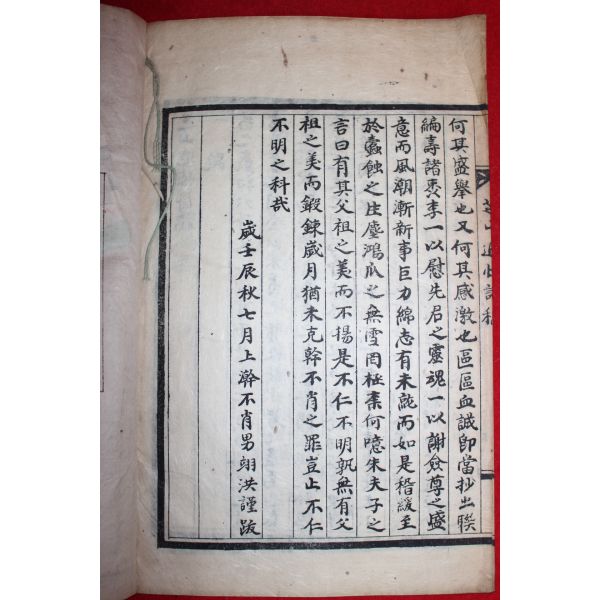 何其盛擧也又何其感激也區區血誠卽當抄出聯
編壽諸棗李一以慰先君之靈魂一以謝僉尊之盛
意而風潮漸新事巨力綿志有未就而如是稽緩至
於蠹蝕之生塵鴻爪之無雪罔極奈何噫朱夫子之
言曰有其父祖之美而不揚是不仁不明孰無有父
祖之美而鍛鍊歲月猶未克幹不肖之罪豈止不仁
不明之科哉
歲壬辰秋七月上澣不肖男翊洪謹跋